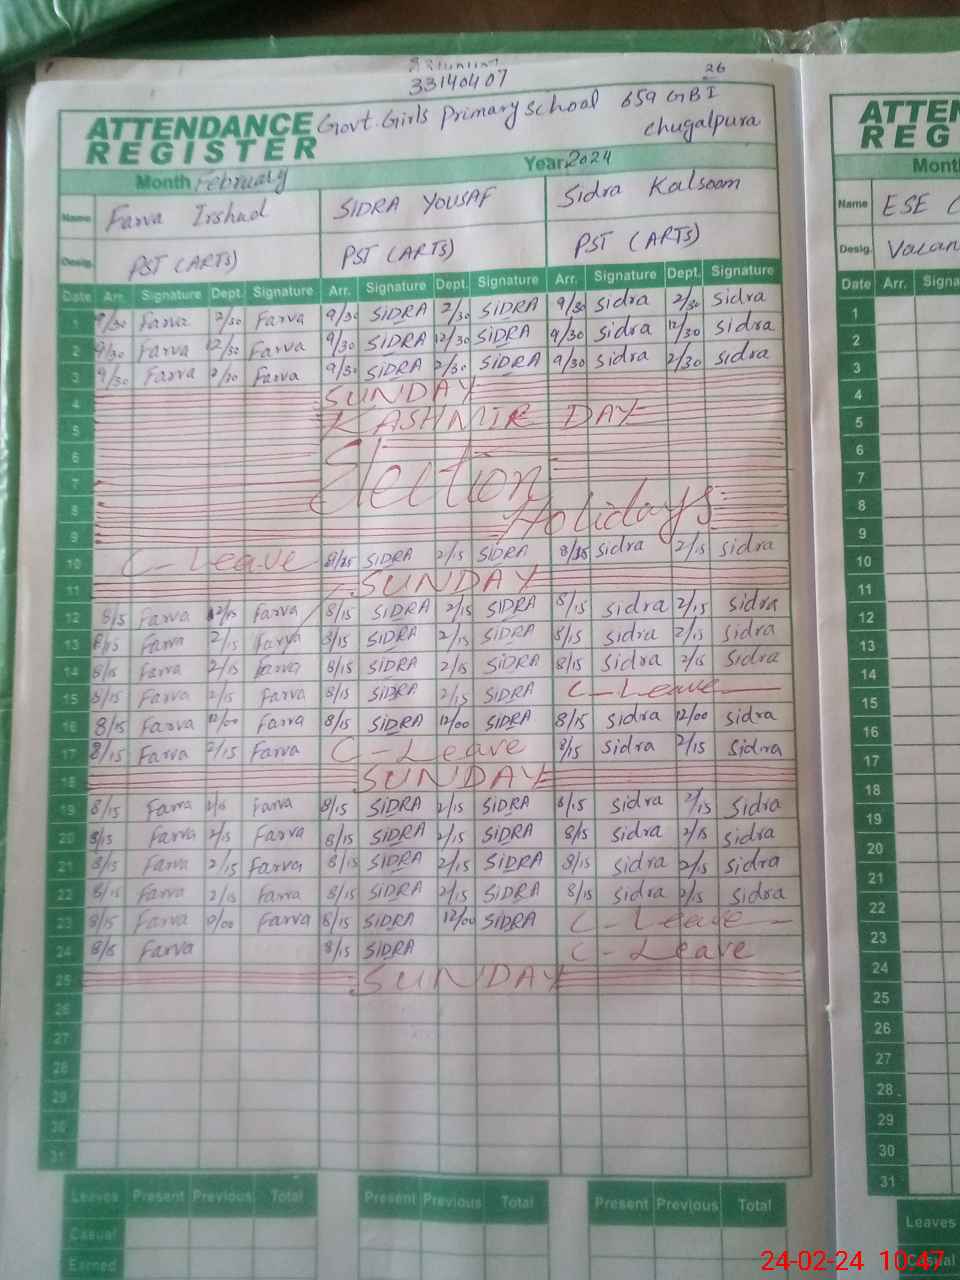 33140407
26
ATTENDANCE REGISTER Govt. Girls Primary school 659 GB I
chugalpura
Month February Year 2024
Name Farva Irshad SIDRA YOUSAF Sidra Kalsoom
Desig. PST (ARTS) PST (ARTS) PST (ARTS)
Date Arr. Signature Dept. Signature Arr. Signature Dept. Signature Arr. Signature Dept. Signature
1 9/30 Farva 2/30 Farva 9/30 SIDRA 2/30 SIDRA 9/30 sidra 2/30 sidra
2 9/30 Farva 12/30 Farva 9/30 SIDRA 12/30 SIDRA 9/30 sidra 12/30 sidra
3 9/30 Farva 2/30 Farva 9/30 SIDRA 2/30 SIDRA 9/30 sidra 2/30 sidra
4 SUNDAY
5 KASHMIR DAY
6
7 Election
8 Holidays
9
10 C Leave SIDRA 2/15 SIDRA sidra 2/15 sidra
11 SUNDAY
12 8/15 Farva Farva 8/15 SIDRA 2/15 SIDRA 8/15 sidra 2/15 sidra
13 8/15 Farva 2/15 Farva 8/15 SIDRA 2/15 SIDRA 8/15 sidra 2/15 sidra
14 8/15 Farva 2/15 Farva 8/15 SIDRA 2/15 SIDRA 8/15 sidra 2/15 sidra
15 8/15 Farva 2/15 Farva 8/15 SIDRA 2/15 SIDRA C-Leave
16 8/15 Farva 12/00 Farva 8/15 SIDRA 12/00 SIDRA 8/15 sidra 12/00 sidra
17 8/15 Farva 2/15 Farva C-Leave 8/15 sidra 2/15 sidra
18 SUNDAY
19 8/15 Farva 2/15 Farva 8/15 SIDRA 2/15 SIDRA 8/15 sidra 2/15 sidra
20 8/15 Farva 2/15 Farva 8/15 SIDRA 2/15 SIDRA 8/15 sidra 2/15 sidra
21 8/15 Farva 2/15 Farva 8/15 SIDRA 2/15 SIDRA 8/15 sidra 2/15 sidra
22 8/15 Farva 2/15 Farva 8/15 SIDRA 2/15 SIDRA 8/15 sidra 2/15 sidra
23 8/15 Farva Farva 8/15 SIDRA 12/00 SIDRA C-Leave
24 8/15 Farva 8/15 SIDRA C-Leave
25 SUNDAY
26
27
28
29
30
31
Leaves Present Previous Total Present Previous Total Present Previous Total
Casual
Earned
REG
Name ESE
Desig.
Date Arr.
1
2
3
4
5
6
7
8
9
10
11
12
13
14
15
16
17
18
19
20
21
22
23
24
25
26
27
28
29
30
31
Leaves
Casual
24-02-24 10:47